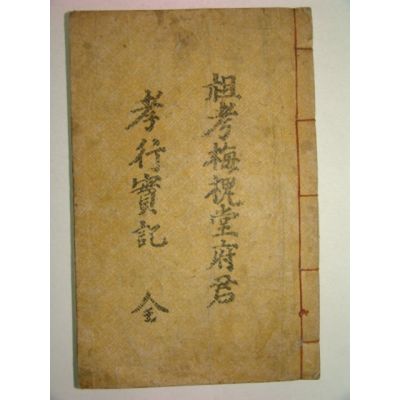 祖考梅槐堂府君
孝行實記 全